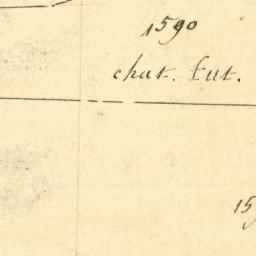 1590
chat. Eut.
15